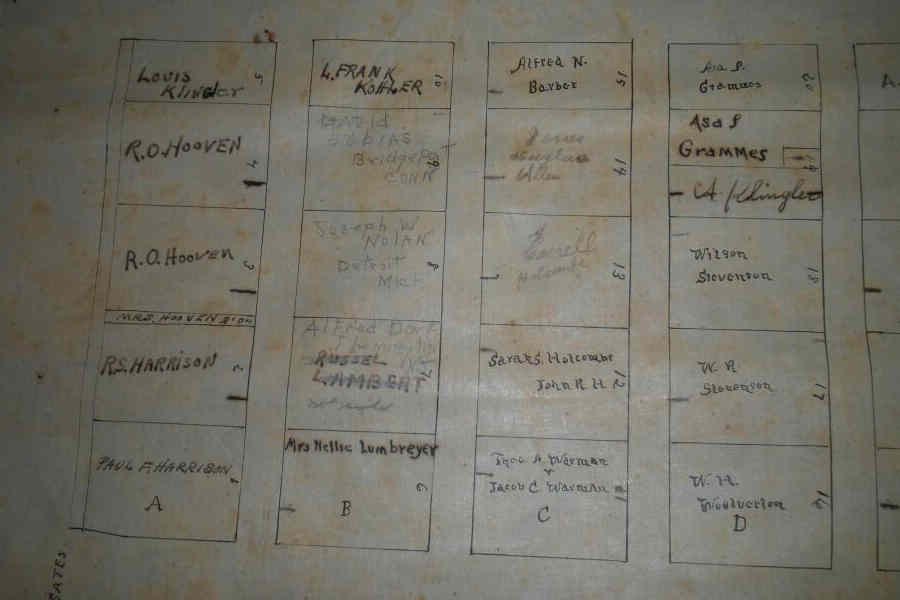 LOUIS
Klinger
5
R.O. HOOVEN
4
R.O. HOOVEN
3
MRS. HOOVEN
R.S. HARRISON
2
PAUL F. HARRISON
1
A
L. FRANK
KOHLER
10
David
TOBIAS
Bridgeport
CONN
9
Joseph W
NOLAN
Detroit
Mich
8
Alfred
RUSSEL
LAMBERT
7
Mrs Nellie Lumbreyer
6
B
Alfred N.
Barber
15
James
Douglass
Allen
14
Farrill
Holcombe
13
Sarah S. Holcombe
John R. H.
12
Theo A. Warman
Jacob C. Warman
11
C
Asa S.
Grammes
20
Asa S
GRAMMES
19
A Klingler
Wilson
Stevenson
18
W. R.
Stevenson
17
W. H.
Woolverton
16
D
L.
GATES